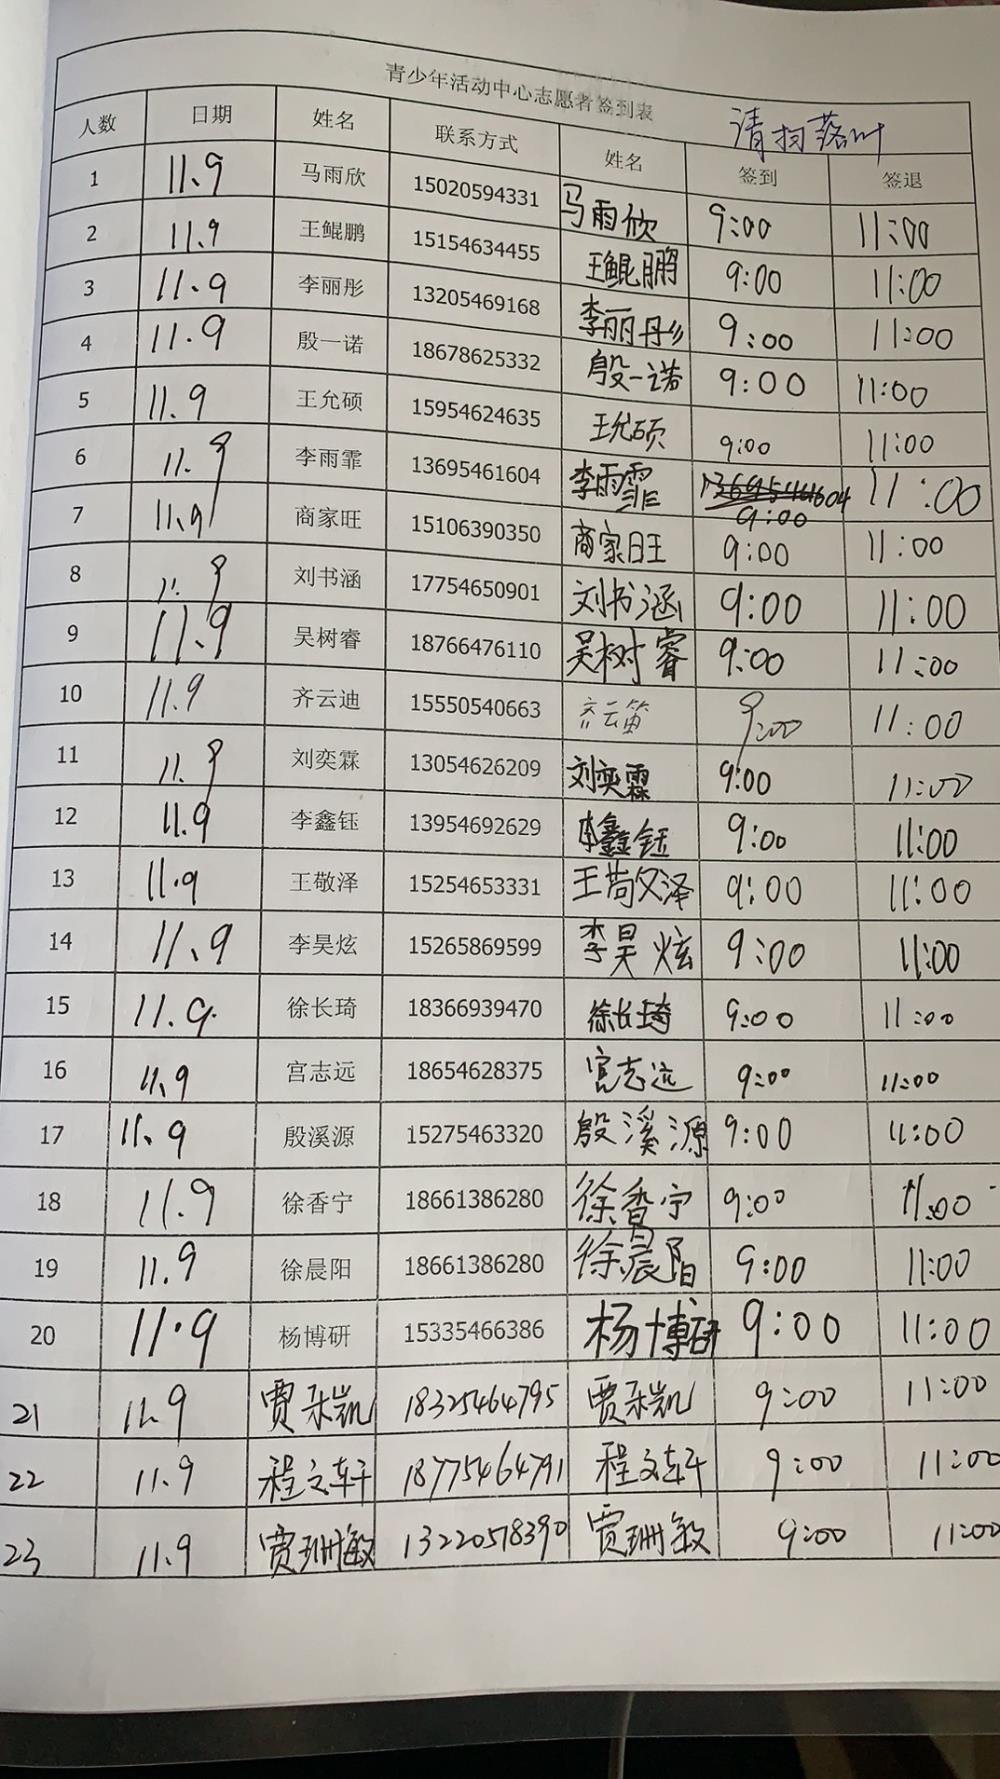 青少年活动中心志愿者签到表 清扫落叶
人数 日期 姓名 联系方式 姓名 签到 签退
1 11.9 马雨欣 15020594331 马雨欣 9:00 11:00
2 11.9 王鲲鹏 15154634455 王鲲鹏 9:00 11:00
3 11.9 李丽彤 13205469168 李丽彤 9:00 11:00
4 11.9 殷一诺 18678625332 殷一诺 9:00 11:00
5 11.9 王允硕 15954624635 王允硕 9:00 11:00
6 11.9 李雨霏 13695461604 李雨霏 13695461604 9:00 11:00
7 11.9 商家旺 15106390350 商家旺 9:00 11:00
8 11.9 刘书涵 17754650901 刘书涵 9:00 11:00
9 11.9 吴树睿 18766476110 吴树睿 9:00 11:00
10 11.9 齐云迪 15550540663 齐云笛 9:00 11:00
11 11.9 刘奕霖 13054626209 刘奕霖 9:00 11:00
12 11.9 李鑫钰 13954692629 李鑫钰 9:00 11:00
13 11.9 王敬泽 15254653331 王敬泽 9:00 11:00
14 11.9 李昊炫 15265869599 李昊炫 9:00 11:00
15 11.9. 徐长琦 18366939470 徐长琦 9:00 11:00
16 11.9 宫志远 18654628375 宫志远 9:00 11:00
17 11.9 殷溪源 15275463320 殷溪源 9:00 11:00
18 11.9 徐香宁 18661386280 徐香宁 9:00 11:00
19 11.9 徐晨阳 18661386280 徐晨阳 9:00 11:00
20 11.9 杨博研 15335466386 杨博研 9:00 11:00
21 11.9 贾承凯 18325464795 贾承凯 9:00 11:00
22 11.9 程文轩 18775464791 程文轩 9:00 11:00
23 11.9 贾珊敏 13220578390 贾珊敏 9:00 11:00